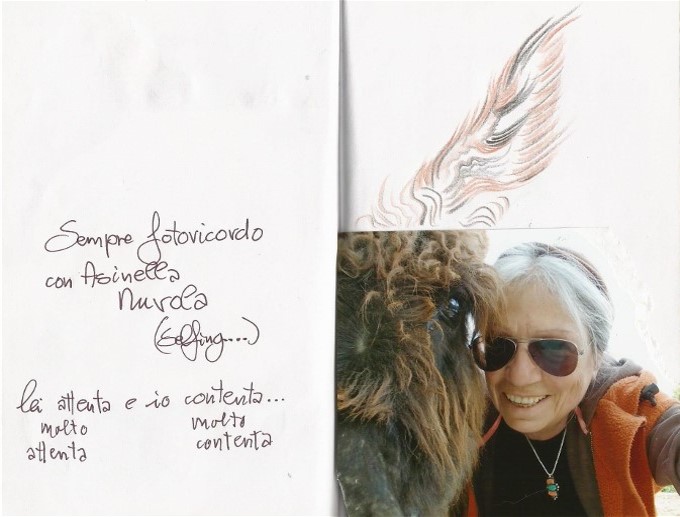 Sempre fotoricordo
con Asinella
Nuvola
(Selfing....)
lei attenta e io contenta...
molto molto
attenta contenta